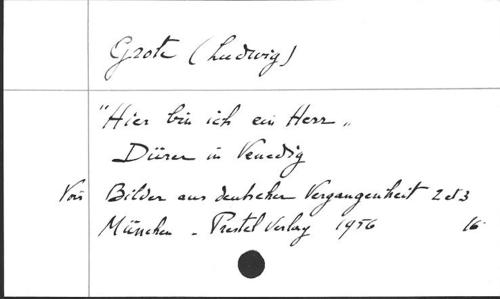 Grote (Ludwig)
"Hier bin ich ein Herr"
Dürer in Venedig
Voir Bilder aus deutscher Vergangenheit 2 et 3
München - Prestel Verlag 1956 16